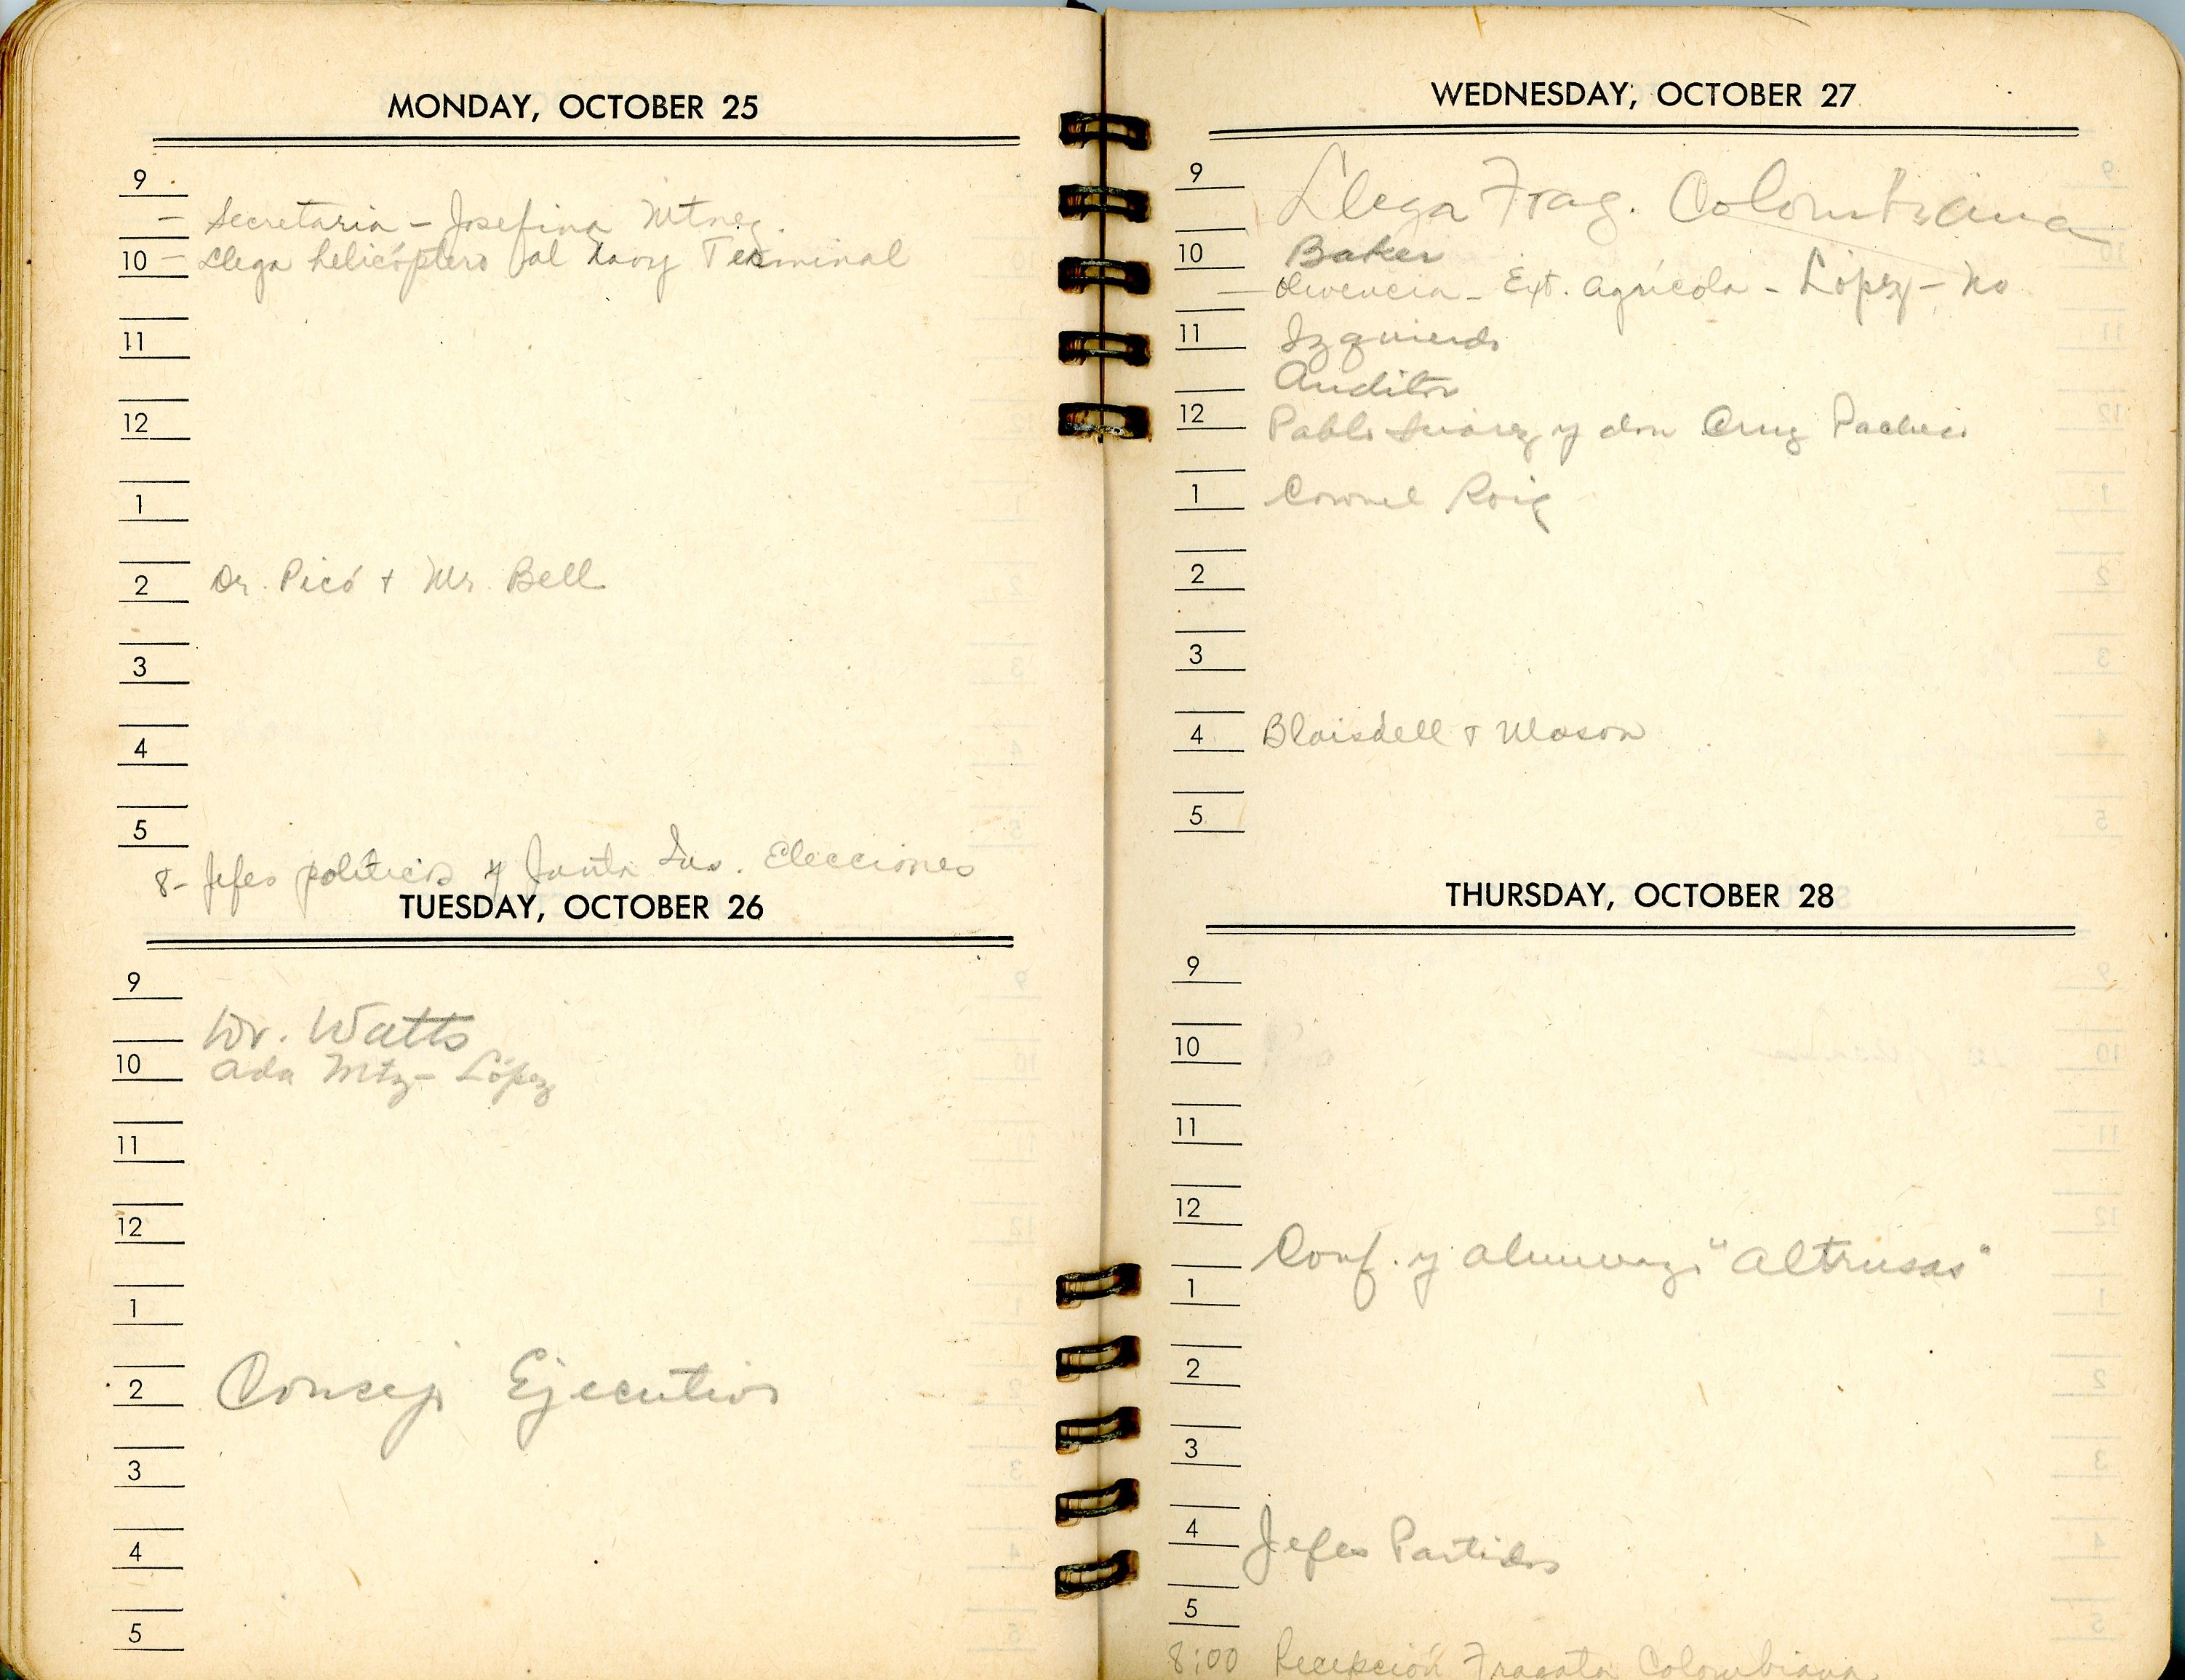 MONDAY, OCTOBER 25
9
— Secretaria - Josefina Mtnez.
10 - Llega helicóptero al Navy Terminal
11
12
1
2 Dr. Picó + Mr. Bell
3
4
5
8- Jefes políticos y Junta Ins. Elecciones
TUESDAY, OCTOBER 26
9
Dr. Watts
10 Ada Mtz- López
11
12
1
2 Consejo Ejecutivo
3
4
5
WEDNESDAY, OCTOBER 27
9 Llega Frag. Colombiana
10 Baker
— Olivencia - Ext. Agrícola - López - No
11 Izquierdo
Auditor
12 Pablo Suárez y don Cruz Pacheco
1 Coronel Roig
2
3
4 Blaisdell + Mason
5
THURSDAY, OCTOBER 28
9
10
11
12
Conf. y almuerzo "Altrusas"
1
2
3
4 Jefes Partidos
5
8:00 Recepción Fragata Colombiana